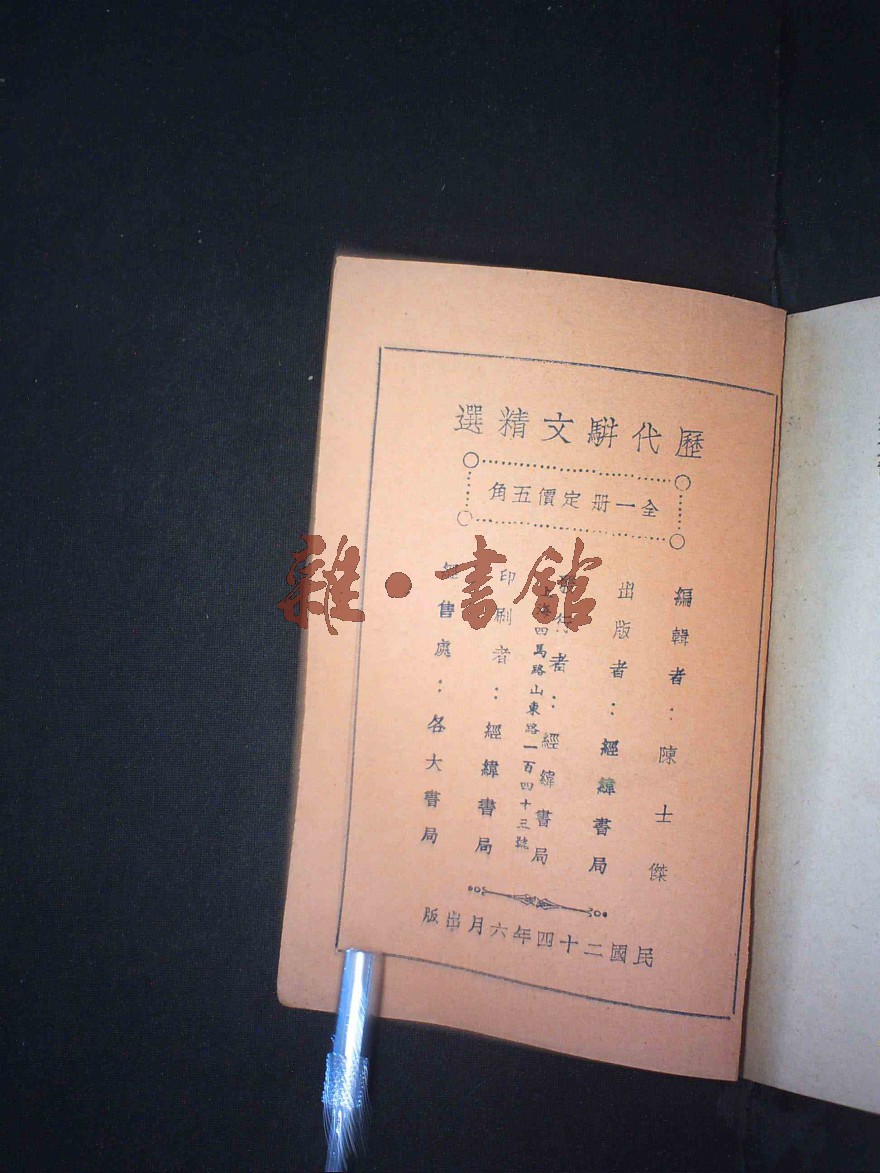 歷代駢文精選
全一册定價五角
編輯者：陳士傑
出版者：經緯書局
發行者：經緯書局
上海四馬路山東路一百四十三號
印刷者：經緯書局
經售處：各大書局
民國二十四年六月出版
雜·書館